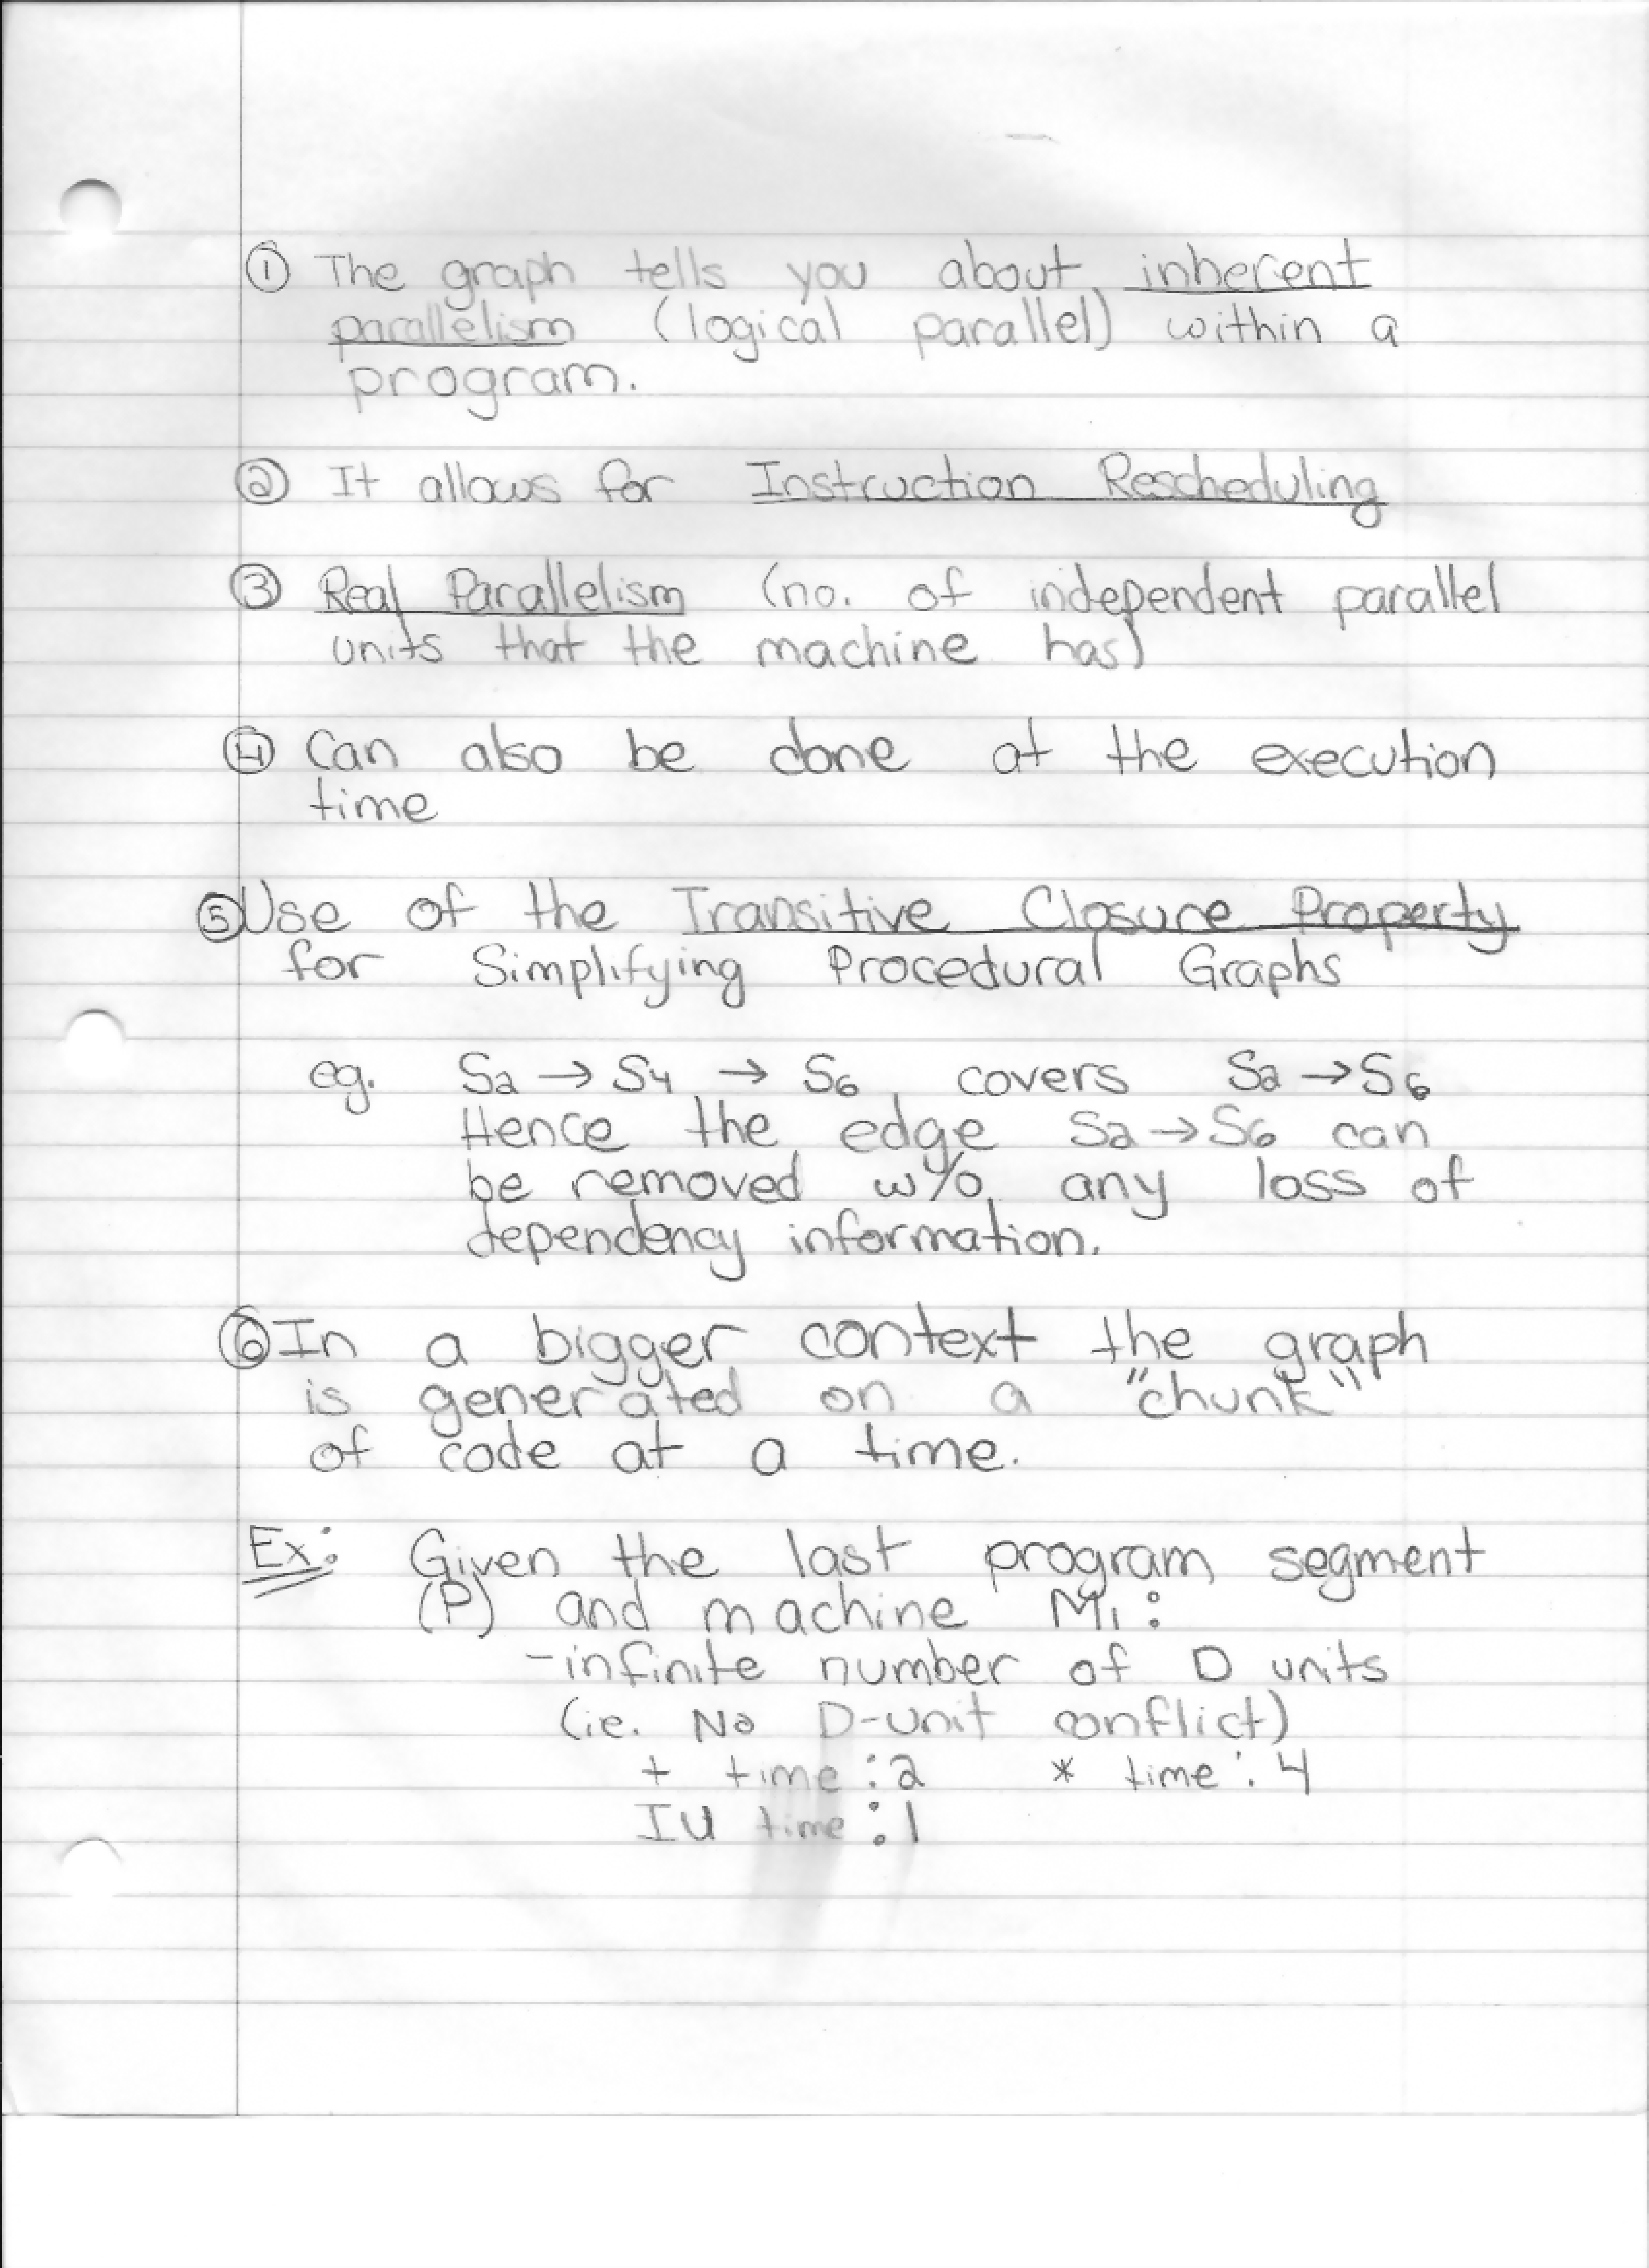 ① The graph tells you about inherent
parallelism (logical parallel) within a
program.
② It allows for Instruction Rescheduling
③ Real Parallelism (no. of independent parallel
units that the machine has)
④ Can also be done at the execution
time
⑤ Use of the Transitive Closure Property
for Simplifying Procedural Graphs
eg. S2 → S4 → S6 covers S2 → S6
Hence the edge S2 → S6 can
be removed w/o any loss of
dependency information.
⑥ In a bigger context the graph
is generated on a "chunk"
of code at a time.
Ex: Given the last program segment
(P) and machine M1:
- infinite number of D units
(ie. No D-unit conflict)
+ time : 2 * time : 4
IU time : 1